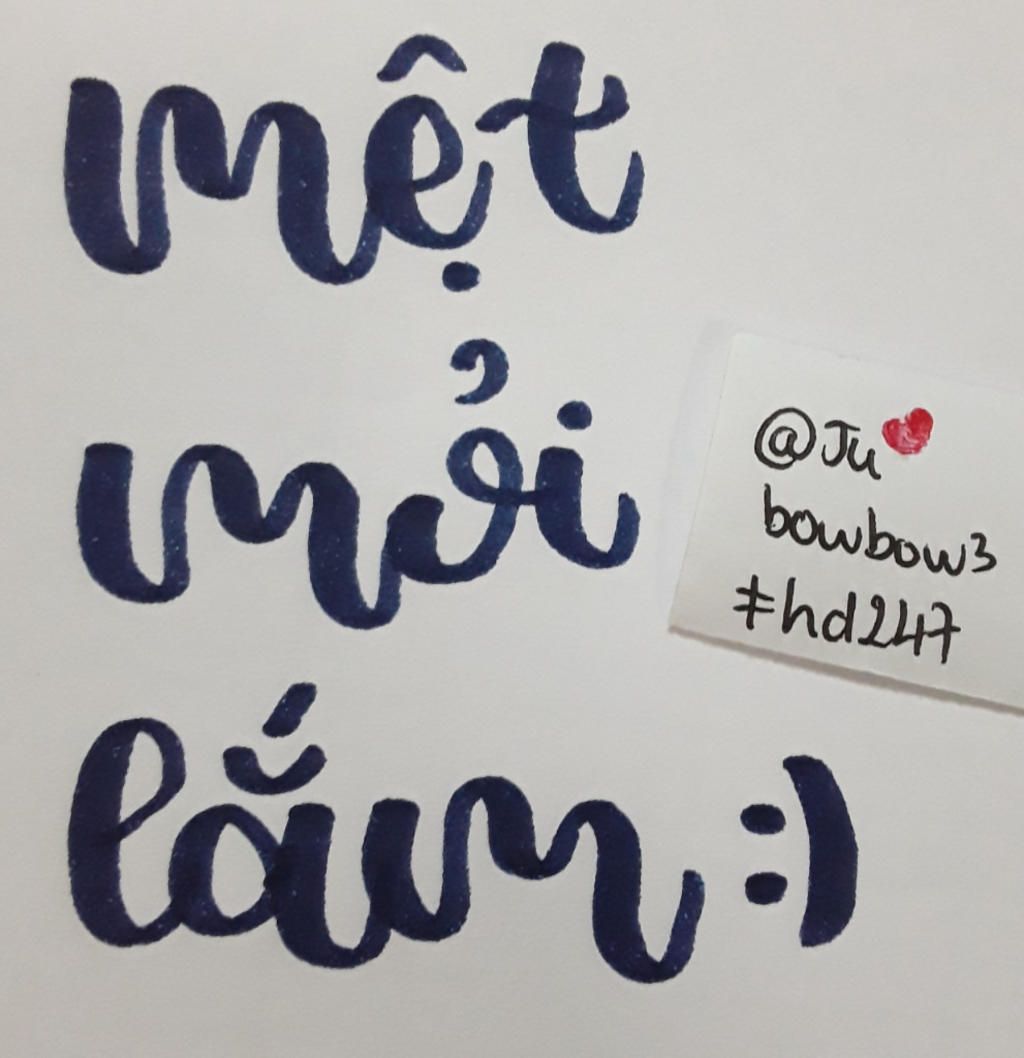 mệt
mỏi
lắm :)
@Ju❤
bowbow3
#hd247